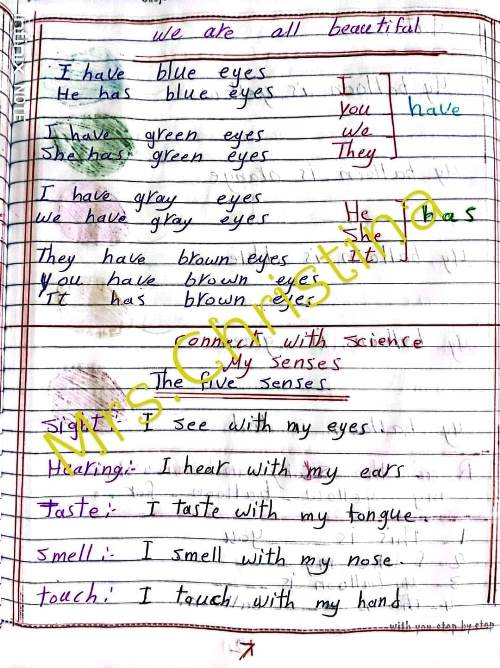 we are all beautiful
I have blue eyes
He has blue eyes
I have green eyes
She has green eyes
I have gray eyes
we have gray eyes
They have brown eyes
you have brown eyes
It has brown eyes
I
you
we
They
have
He
She
It
has
Connect with science
My senses
The five senses
Sight:- I see with my eyes.
Hearing:- I hear with my ears.
Taste:- I taste with my tongue.
smell:- I smell with my nose.
touch: I touch with my hand
with you step by step
Mrs. Christina